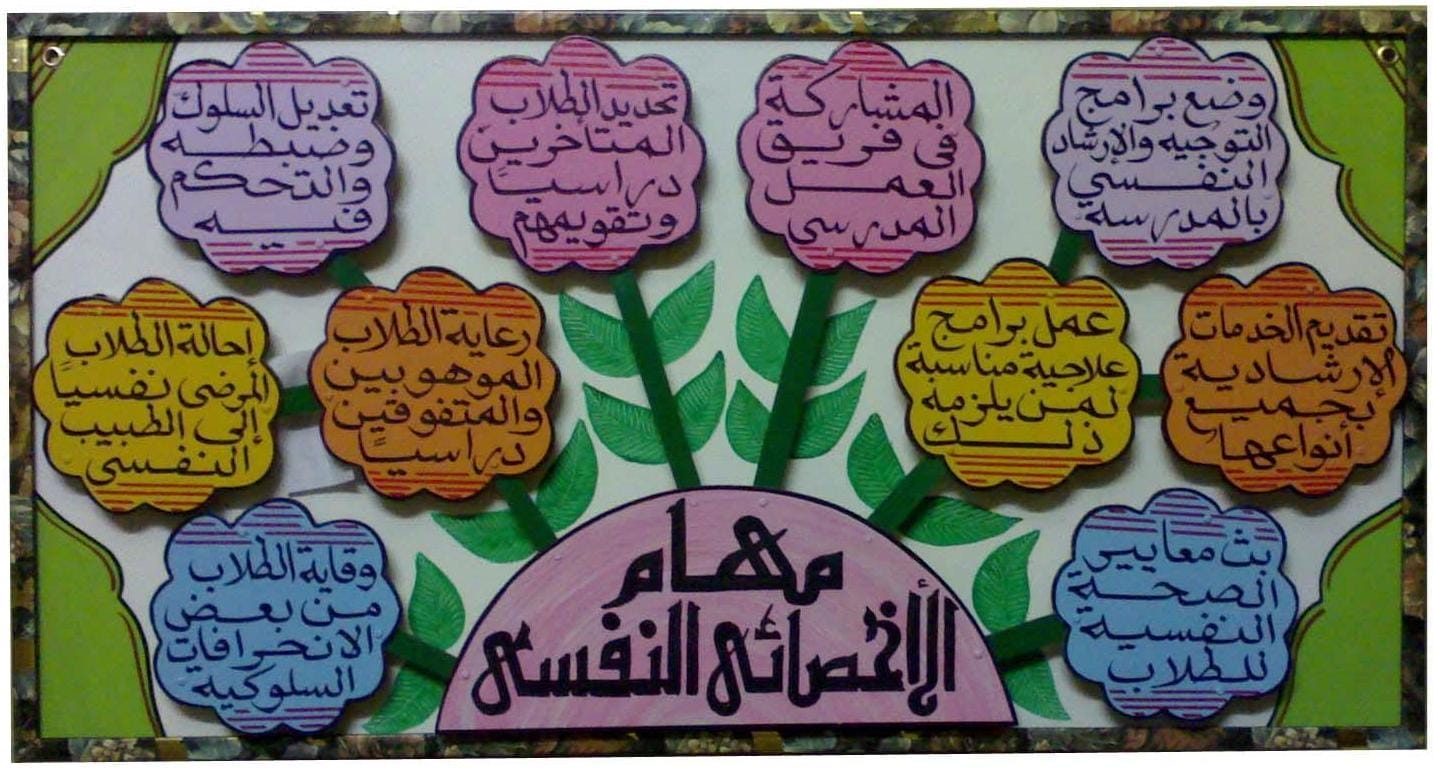 وضع برامج
التوجيه والإرشاد
النفسي
بالمدرسة
المشاركة
فى فريق
العمل
المدرسى
تحديد الطلاب
المتاخرين
دراسياً
وتقويمهم
تعديل السلوك
وضبطه
والتحكم
فيه
تقديم الخدمات
الإرشادية
بجميع
أنواعها
عمل برامج
علاجية مناسبة
لمن يلزمه
ذلك
رعاية الطلاب
الموهوبين
والمتفوقين
دراسياً
إحالة الطلاب
المرضى نفسياً
إلى الطبيب
النفسى
بث معايير
الصحة
النفسية
للطلاب
وقاية الطلاب
من بعض
الانحرافات
السلوكية
مهام
الأخصائى النفسى